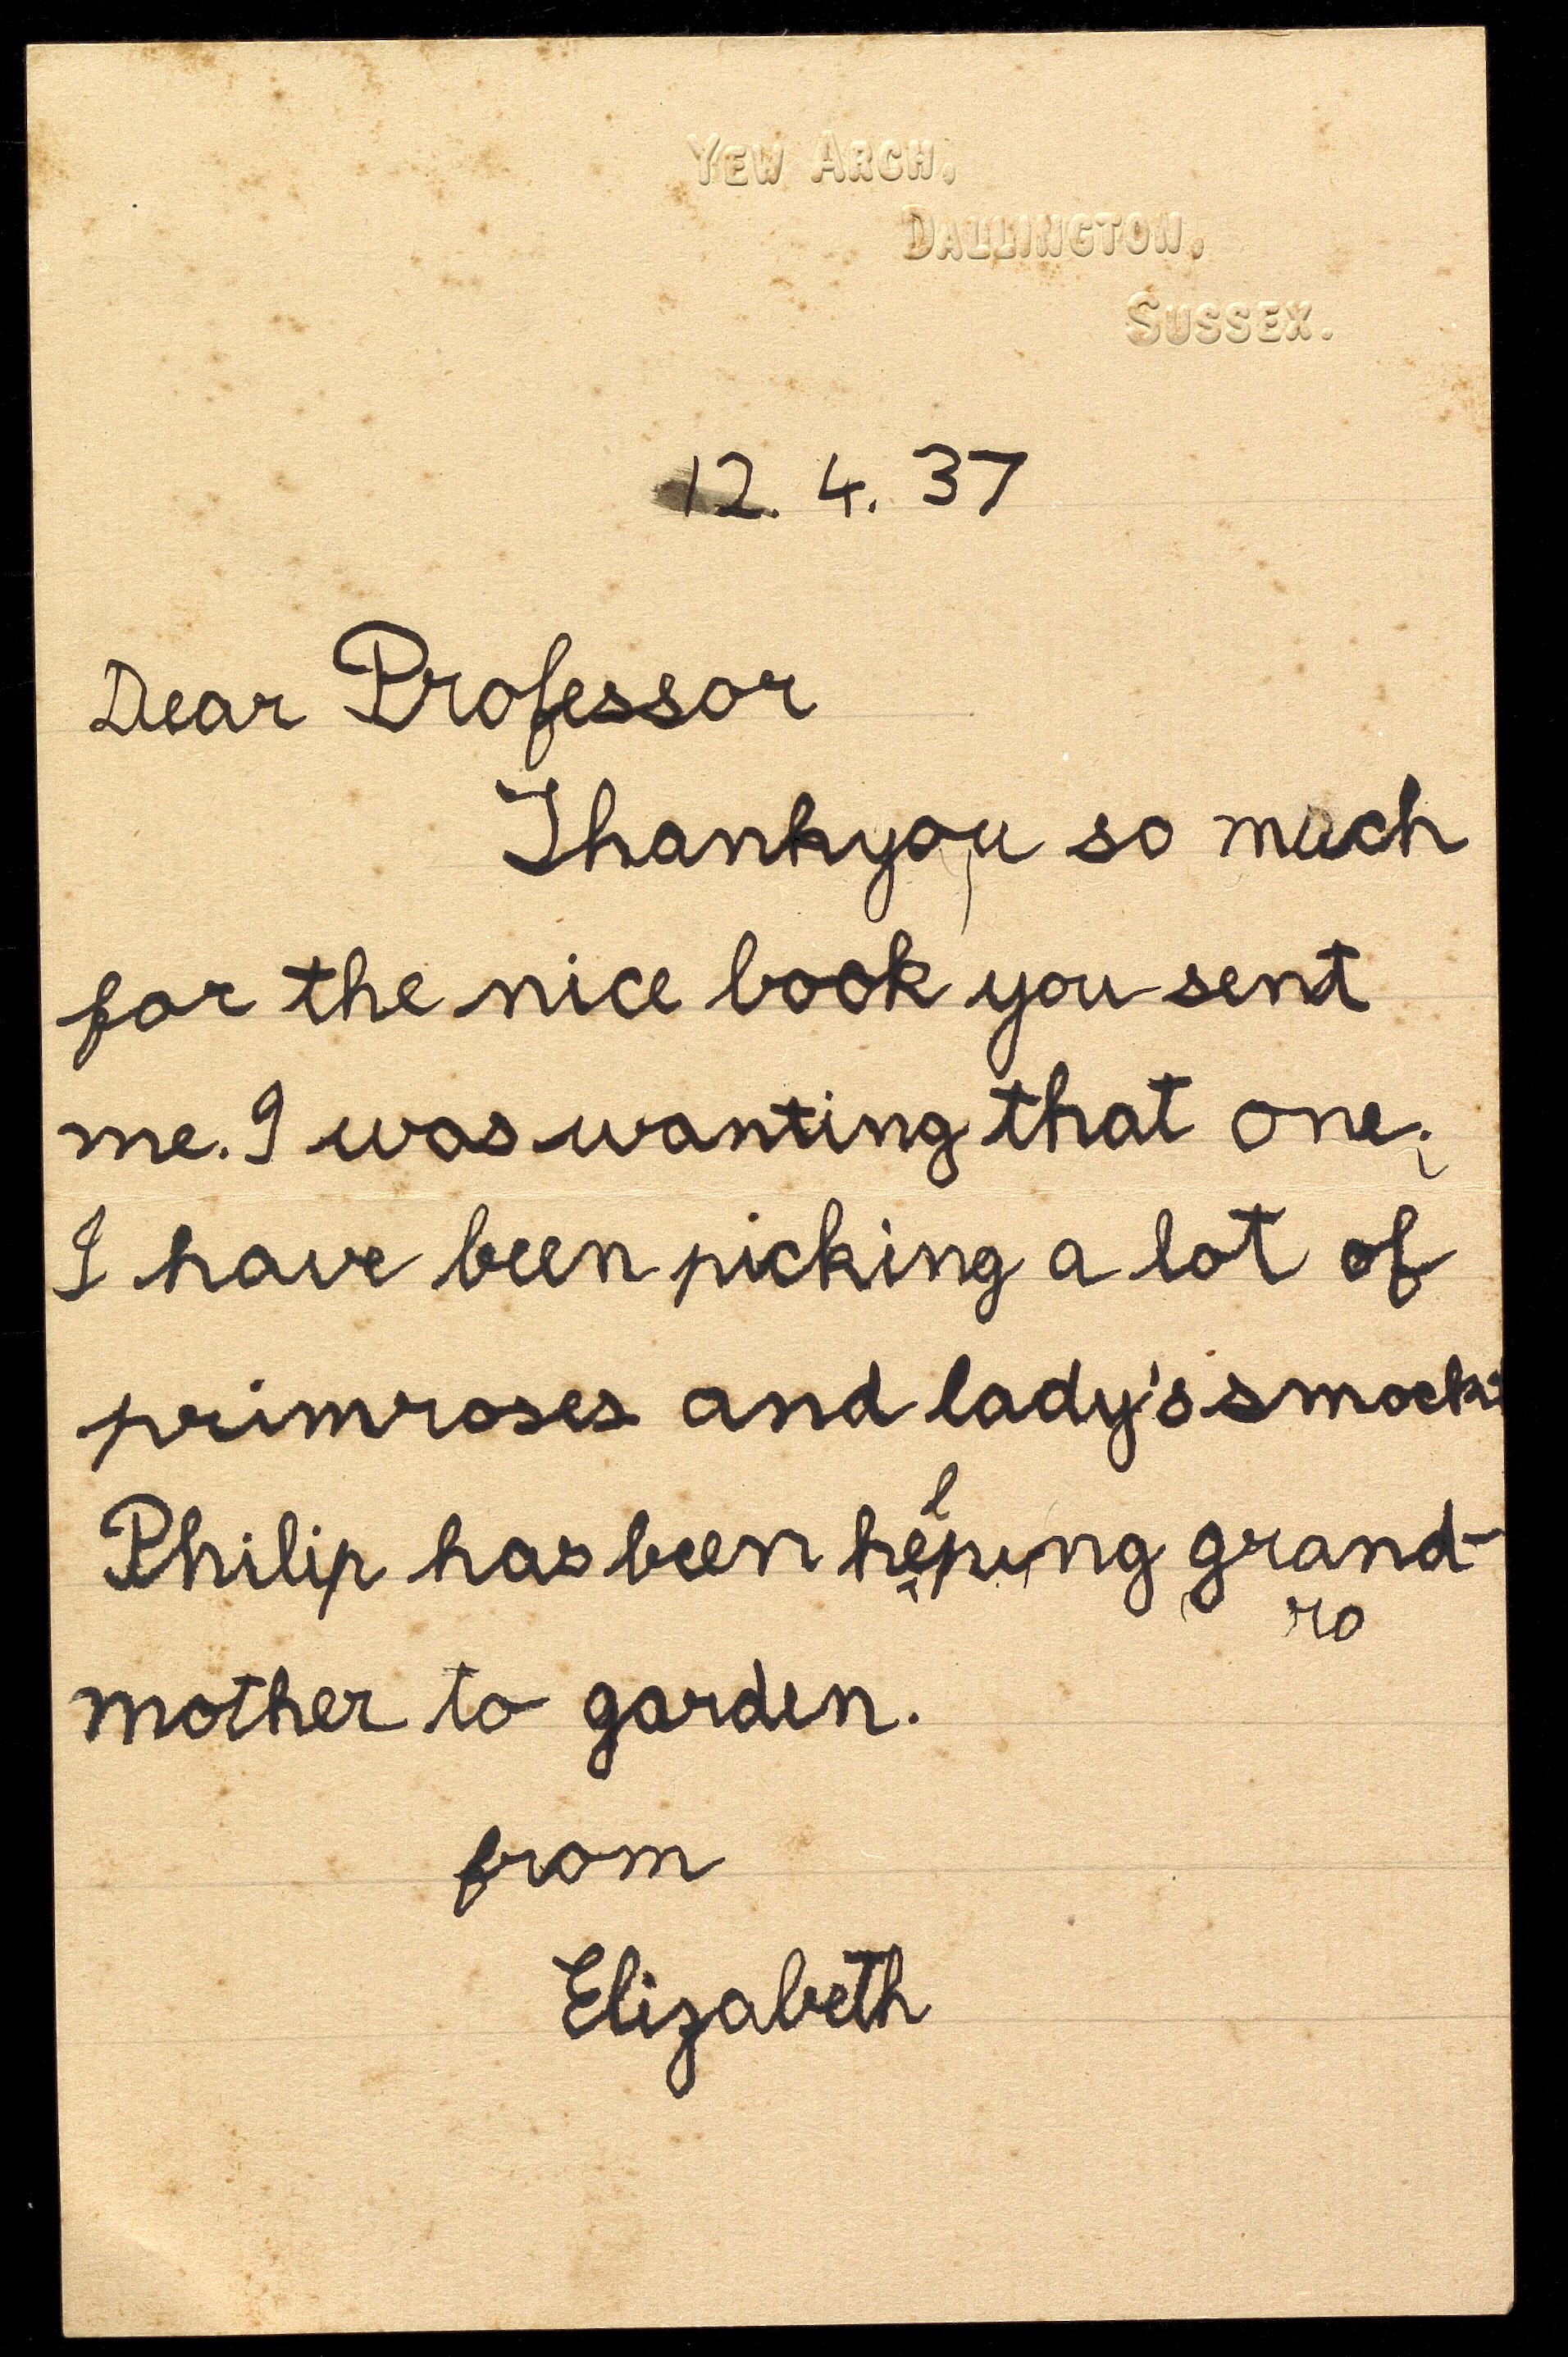 YEW ARCH,
DALLINGTON,
SUSSEX.
12. 4. 37
Dear Professor
Thankyou so much
for the nice book you sent
me. I was wanting that one.
I have been picking a lot of
primroses and lady's smocks
Philip has been helping grand-
ro
mother to garden.
from
Elizabeth